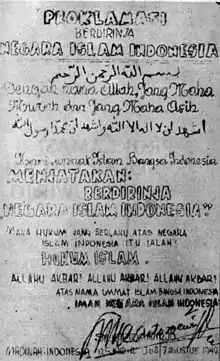 PROKLAMASI
BERDIRINJA
NEGARA ISLAM INDONESIA
بسم الله الرحمن الرحيم
Dengan nama Allah, Jang Maha
Murah dan Jang Maha Asih
اشهد ان لا اله الا الله واشهد ان محمدا رسول الله
Kami, ummat Islam Bangsa Indonesia
MENJATAKAN:
BERDIRINJA
NEGARA ISLAM INDONESIA"
MAKA HUKUM JANG BERLAKU ATAS NEGARA
ISLAM INDONESIA ITU IALAH:
HUKUM ISLAM.
ALLAHU AKBAR! ALLAHU AKBAR! ALLAHU AKBAR!
ATAS NAMA UMMAT ISLAM BANGSA INDONESIA
IMAM NEGARA ISLAM INDONESIA
MADINAH-INDONESIA, 1368/7 AGUSTUS 1949